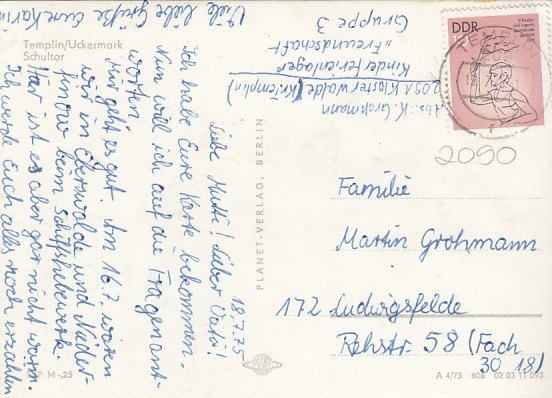 Templin/Uckermark
Schultor
18.7.75
Liebe Mutti! Lieber Vati!
Ich habe Eure Karte bekommen.
Nun will ich auf die Fragen ant-
worten.
Mir geht es gut. Am 16.7 waren
wir in Eberswalde und Nieder-
finow beim Schiffshebewerk.
Hier ist es aber gar nicht warm.
Ich werde Euch alles noch erzählen
Viele liebe Grüße Eure Karin
Abs.: K. Grohmann
2091 Klosterwalde (Kr. Templin)
Kinderferienlager
"Freundschaft"
Gruppe 3
DDR
2090
PLANET-VERLAG, BERLIN
Familie
Martin Grohmann
172 Ludwigsfelde
Rohstr. 58 (Fach
30 18)
M -,25
A 4/73 605 02 03 11 093